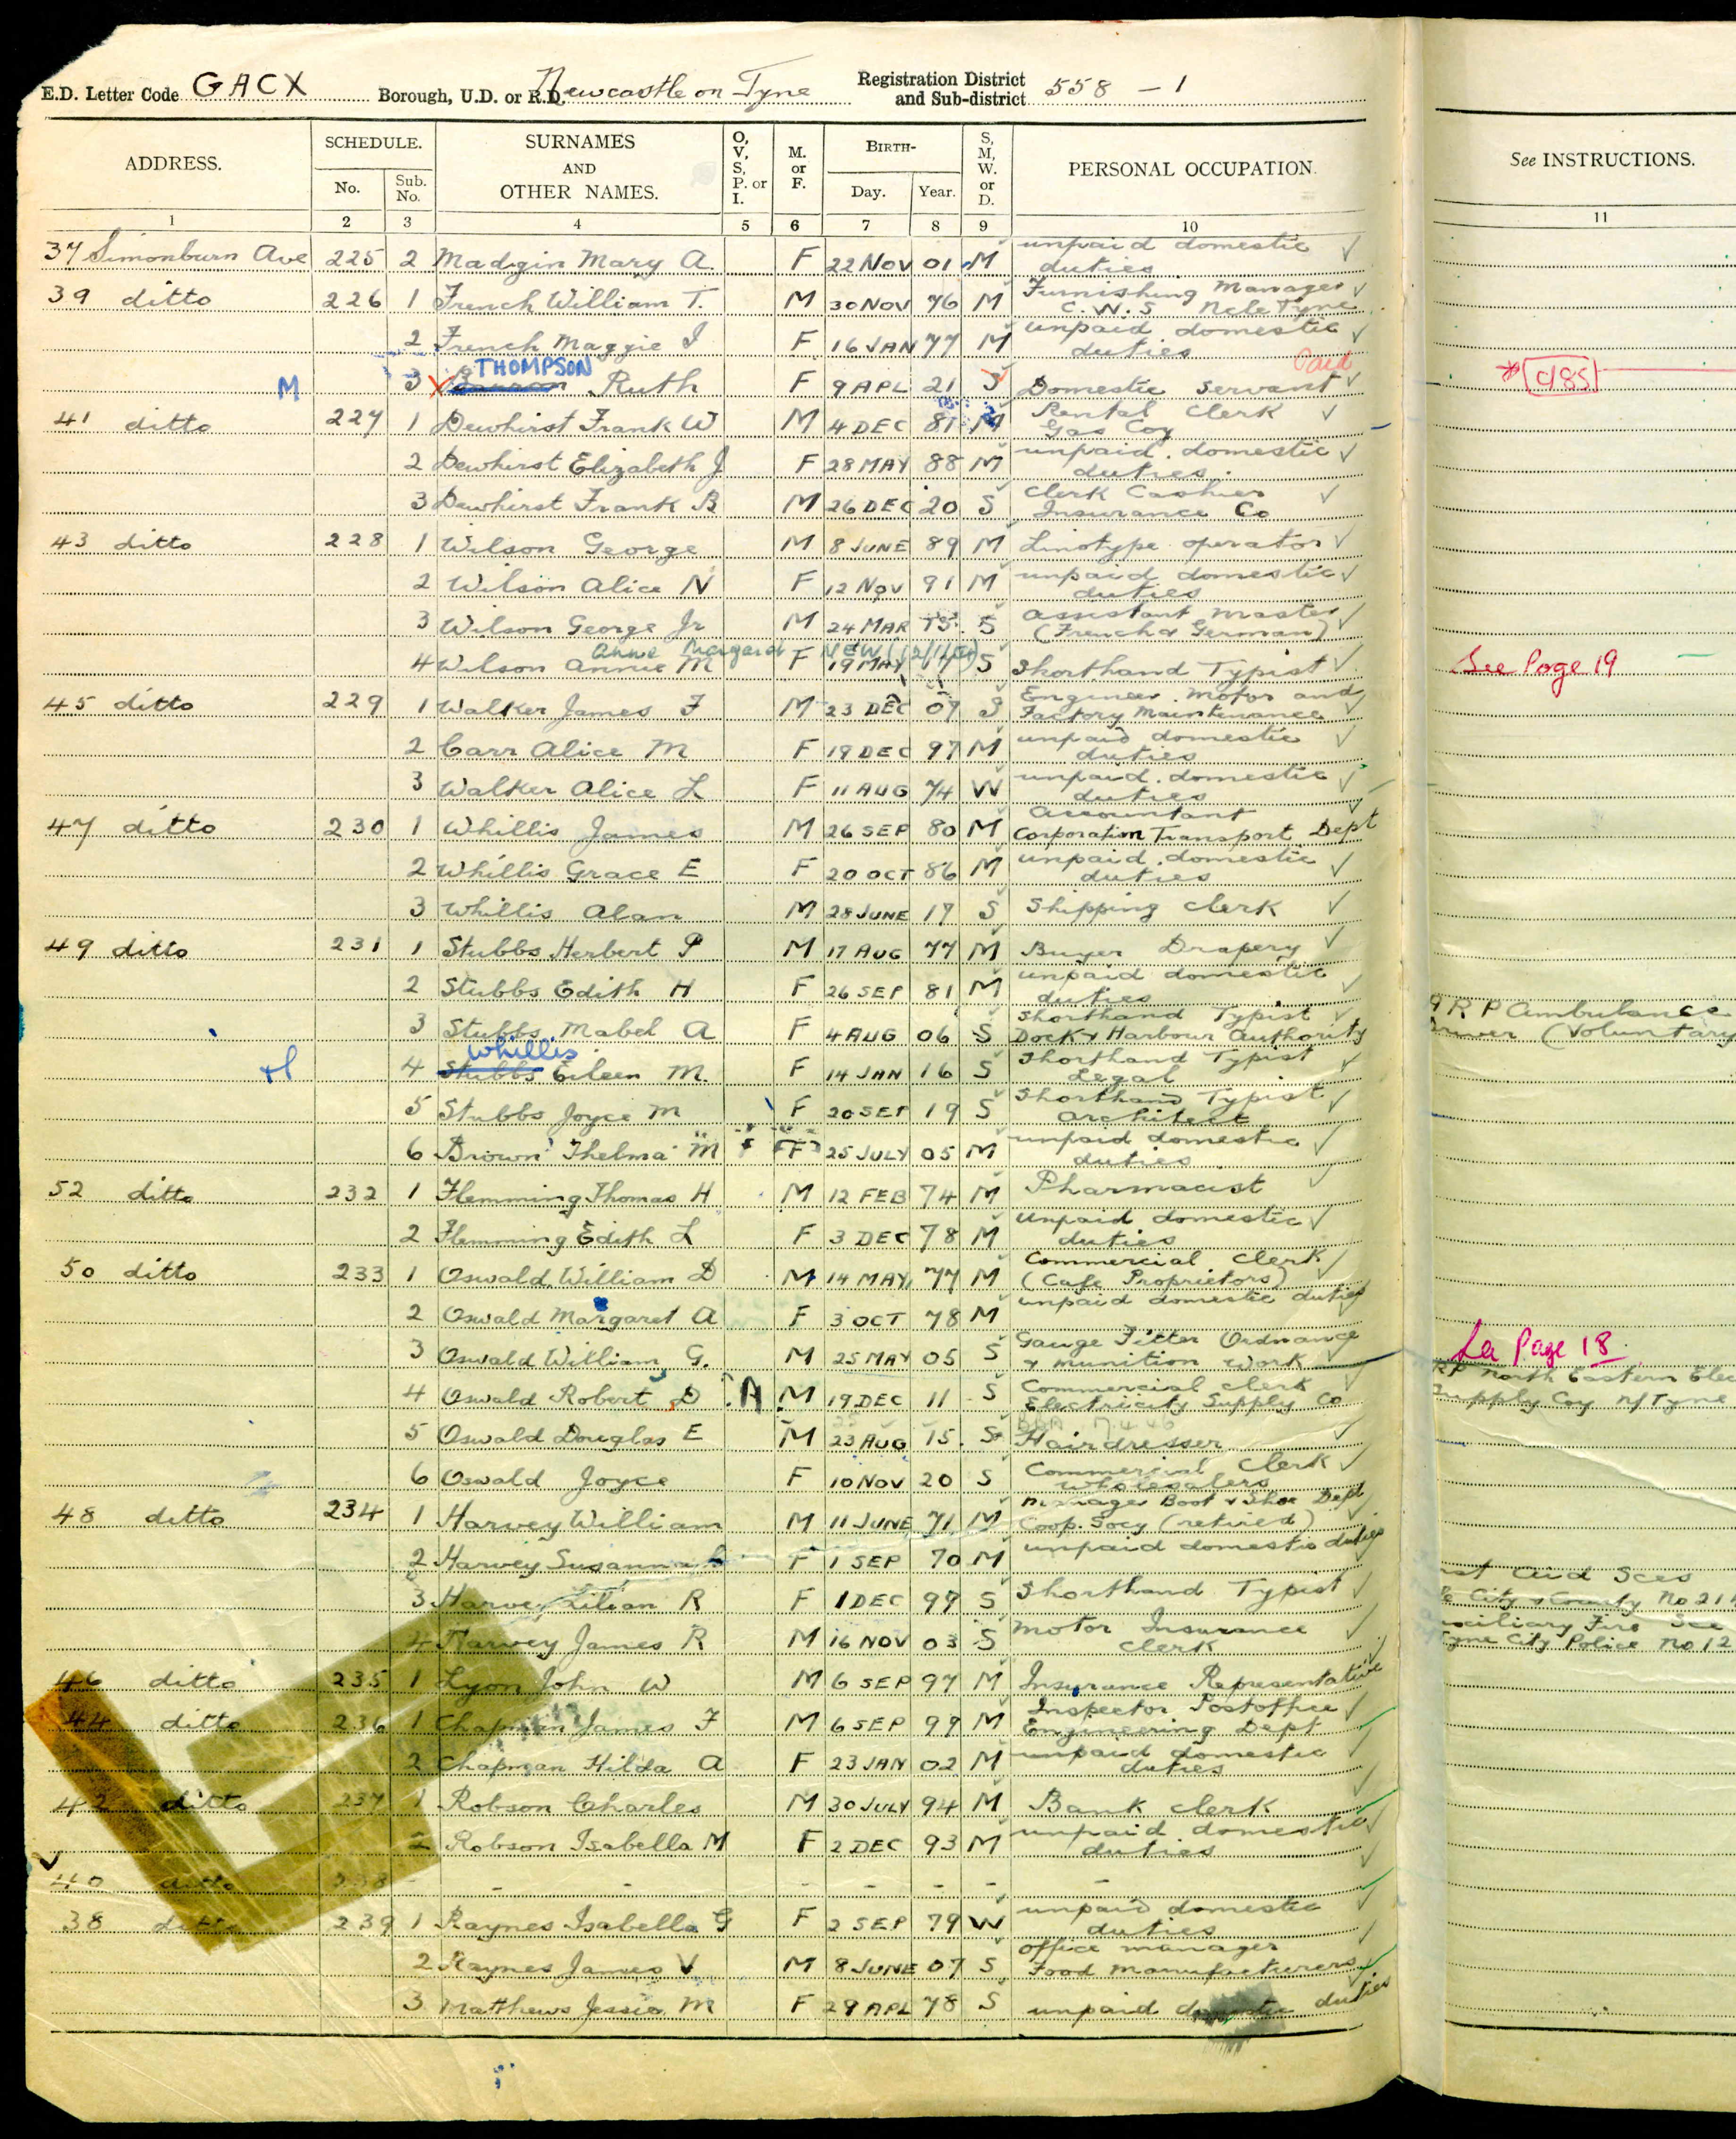 E.D. Letter Code GACX Borough, U.D. or R.D. Newcastle on Tyne Registration District and Sub-district 558 - 1
ADDRESS. SCHEDULE. No. Sub. No. SURNAMES AND OTHER NAMES. O, V, S, P. or I. M. or F. BIRTH- Day. Year. S, M, W. or D. PERSONAL OCCUPATION. See INSTRUCTIONS.
1 2 3 4 5 6 7 8 9 10 11
37 Simonburn Ave 225 2 Madgin Mary A. F 22 NOV 01 M unpaid domestic duties
39 ditto 226 1 French William T. M 30 NOV 76 M Furnishing Manager C.W.S Ncle Tyne
2 French Maggie I F 16 JAN 77 M unpaid domestic duties
M 3 THOMPSON Ruth F 9 APL 21 S Domestic Servant Paid * C185
41 ditto 227 1 Dewhirst Frank W M 4 DEC 81 M Rental Clerk Gas Coy
2 Dewhirst Elizabeth J F 28 MAY 88 M unpaid domestic duties
3 Dewhirst Frank B M 26 DEC 20 S Clerk Cashier Insurance Co
43 ditto 228 1 Wilson George M 8 JUNE 89 M Linotype operator
2 Wilson Alice N F 12 NOV 91 M unpaid domestic duties
3 Wilson George Jr M 24 MAR 15 S assistant master (French & German)
Anne Margaret NEW
4 Wilson Annie M F 19 MAY 17 S Shorthand Typist See Page 19
45 ditto 229 1 Walker James F M 23 DEC 07 S Engineer Motor and Factory Maintenance
2 Carr Alice M F 19 DEC 97 M unpaid domestic duties
3 Walker Alice L F 11 AUG 74 W unpaid domestic duties
47 ditto 230 1 Whillis James M 26 SEP 80 M Accountant Corporation Transport Dept
2 Whillis Grace E F 20 OCT 86 M unpaid domestic duties
3 Whillis Alan M 28 JUNE 17 S Shipping Clerk
49 ditto 231 1 Stubbs Herbert P M 17 AUG 77 M Buyer Drapery
2 Stubbs Edith H F 26 SEP 81 M unpaid domestic duties
3 Stubbs Mabel A F 4 AUG 06 S Shorthand Typist Dock & Harbour Authority A R P Ambulance Driver (Voluntary
Whillis
4 Stubbs Eileen M. F 14 JAN 16 S Shorthand Typist Legal
5 Stubbs Joyce M F 20 SEP 19 S Shorthand Typist Architect
6 Brown Thelma M F 25 JULY 05 M unpaid domestic duties
52 ditto 232 1 Flemming Thomas H M 12 FEB 74 M Pharmacist
2 Flemming Edith L F 3 DEC 78 M unpaid domestic duties
50 ditto 233 1 Oswald William D M 14 MAY 77 M Commercial Clerk (Cafe Proprietors)
2 Oswald Margaret A F 3 OCT 78 M unpaid domestic duties
3 Oswald William G. M 25 MAY 05 S Gauge Fitter Ordnance & munition work See Page 18
4 Oswald Robert D A M 19 DEC 11 S Commercial clerk Electricity Supply Co North Eastern Elec Supply Coy N/Tyne
5 Oswald Douglas E M 23 AUG 15 S Hairdresser
6 Oswald Joyce F 10 NOV 20 S Commercial Clerk Wholesalers
48 ditto 234 1 Harvey William M 11 JUNE 71 M Manager Boot & Shoe Dept Coop. Socy (retired)
2 Harvey Susanna F 1 SEP 70 M unpaid domestic duties
3 Harvey Lilian R F 1 DEC 99 S Shorthand Typist Aid Sces City & County No 214
4 Harvey James R M 16 NOV 03 S Motor Insurance Clerk Fire Tyne City Police No 12
46 ditto 235 1 Lyon John W M 6 SEP 97 M Insurance Representative
44 ditto 236 1 Chapman James F M 6 SEP 99 M Inspector Postoffice Engineering Dept
2 Chapman Hilda A F 23 JAN 02 M unpaid domestic duties
42 ditto 237 1 Robson Charles M 30 JULY 94 M Bank Clerk
2 Robson Isabella M F 2 DEC 93 M unpaid domestic duties
40 ditto 238 - - - - - - - -
38 ditto 239 1 Raynes Isabella G F 2 SEP 79 W unpaid domestic duties
2 Raynes James V M 8 JUNE 07 S office manager Food manufacturers
3 Matthews Jessie M F 29 APL 78 S unpaid domestic duties